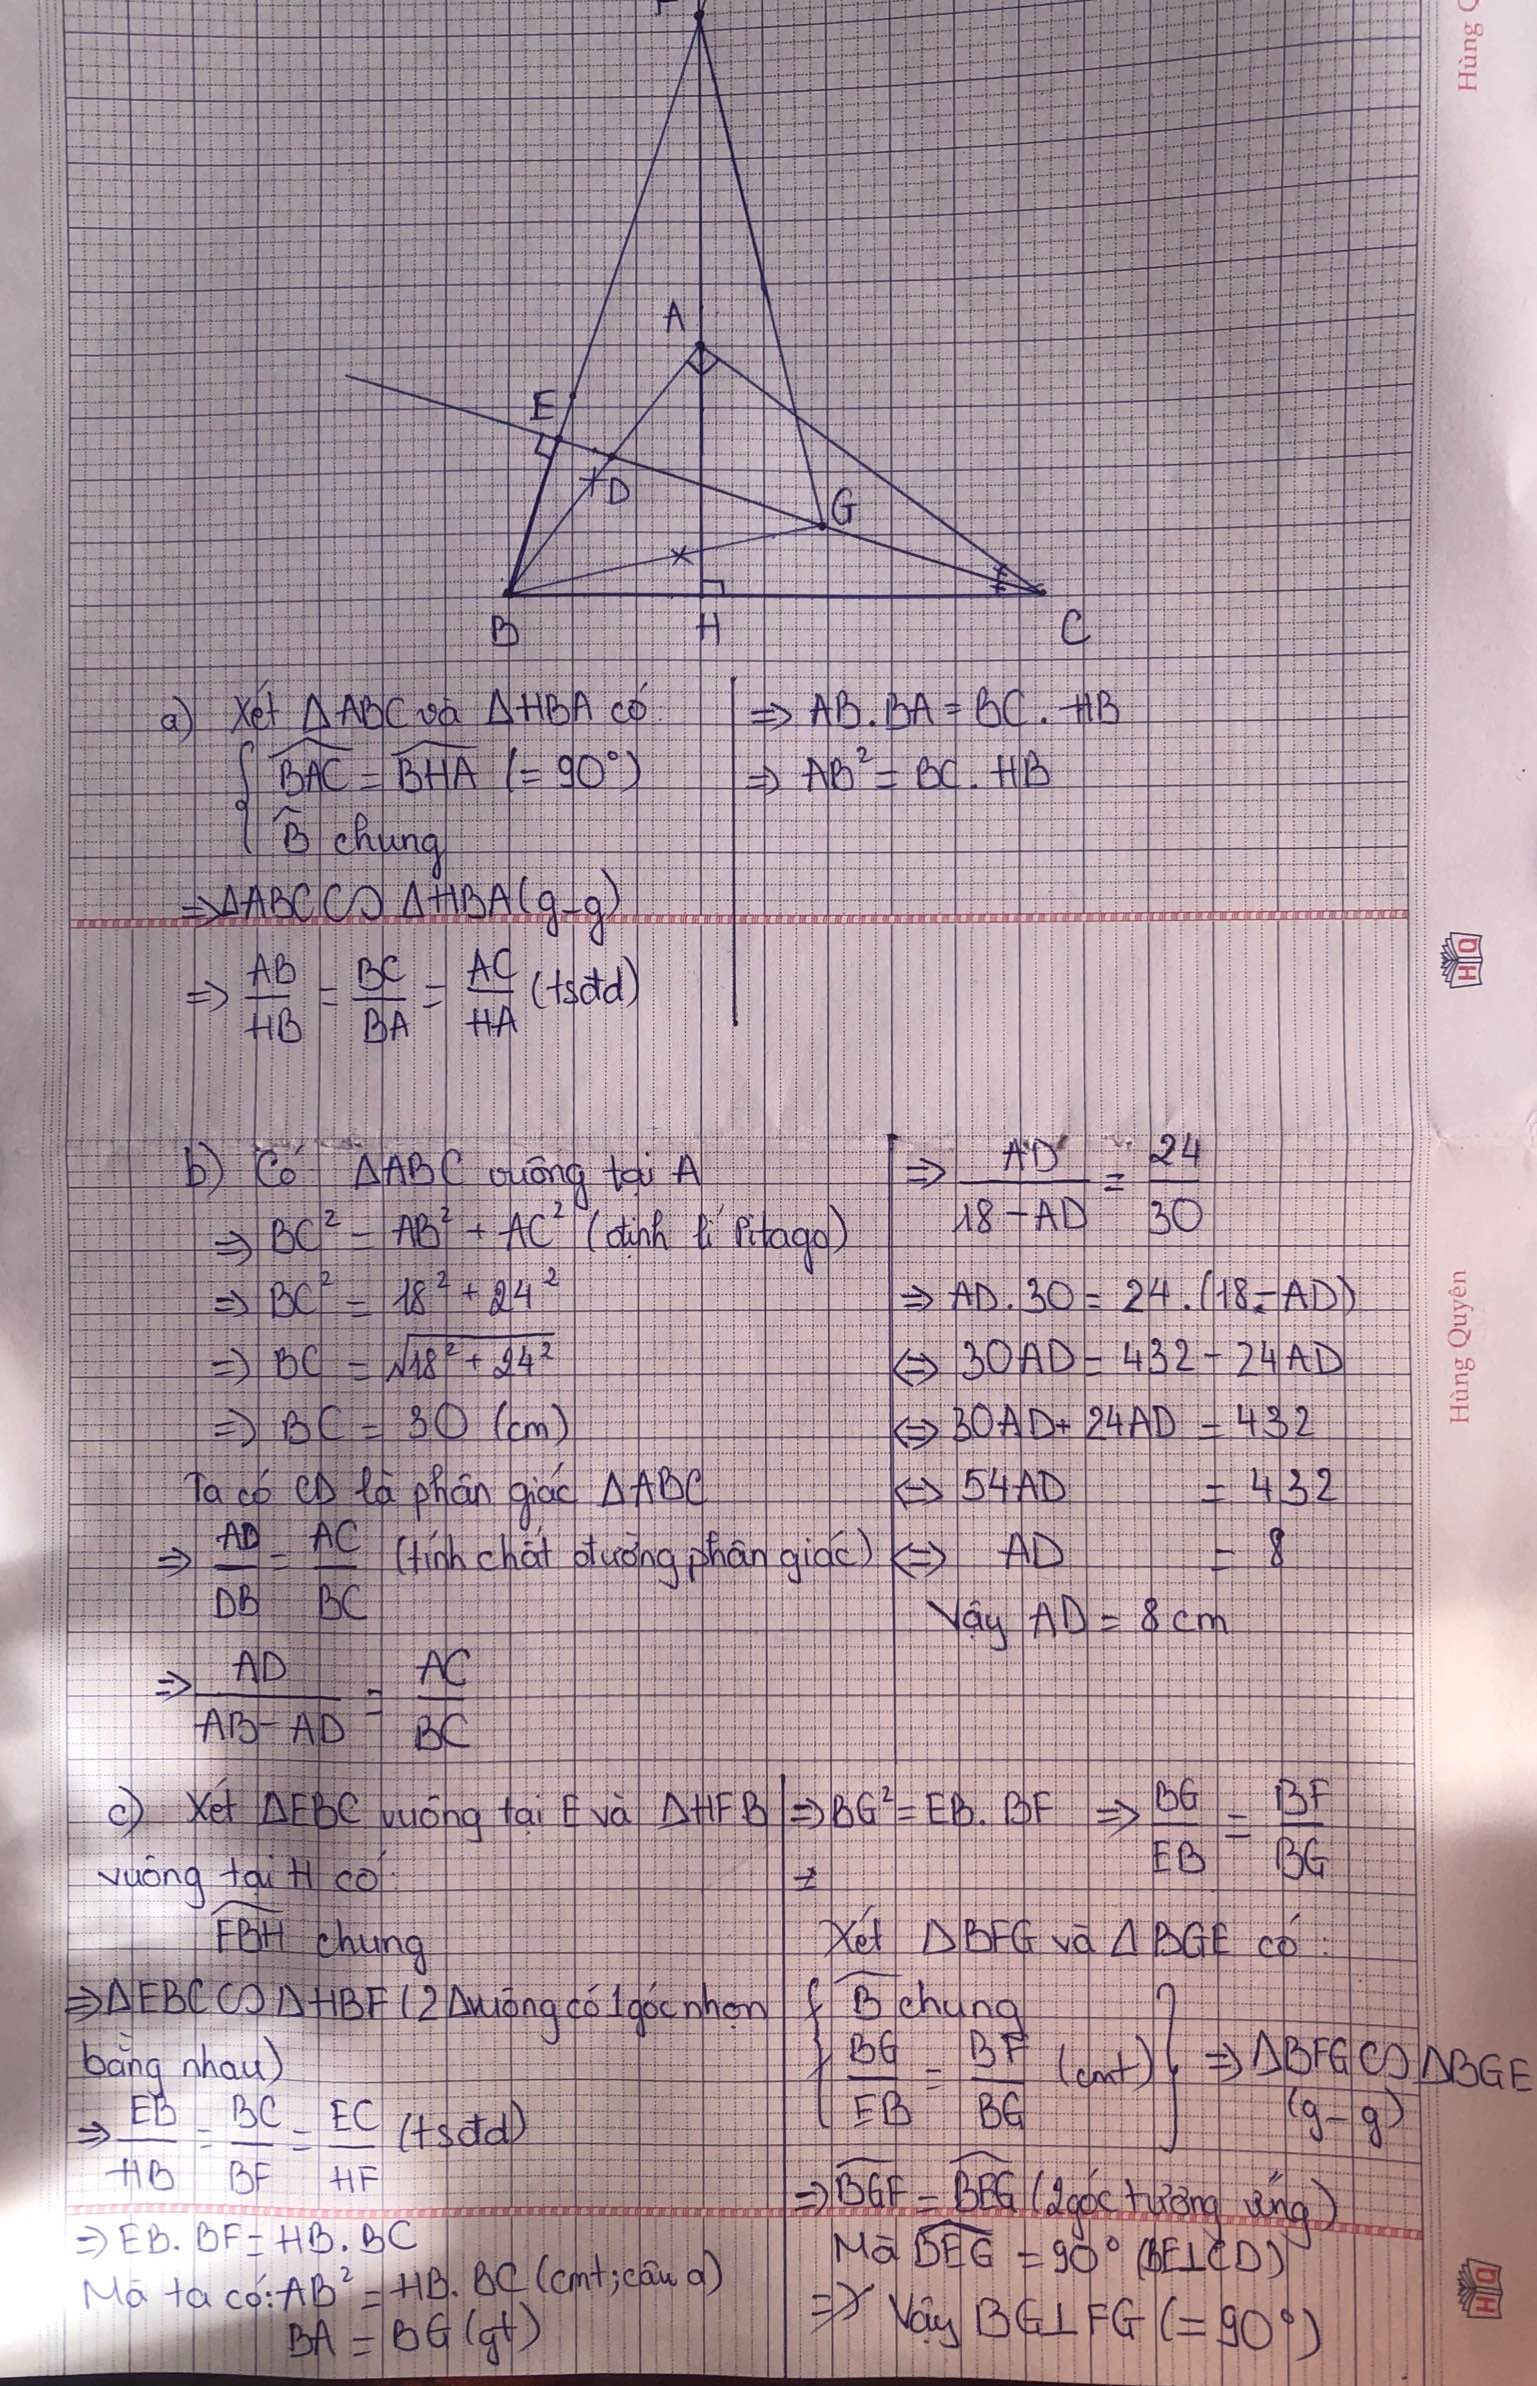 A
E
D
G
B
H
C
a) Xét ΔABC và ΔHBA có
BAC = BHA (= 90°)
B chung
⇒ ΔABC ∽ ΔHBA (g-g)
⇒ AB/HB = BC/BA = AC/HA (tsđd)
⇒ AB.BA = BC.HB
⇒ AB² = BC.HB
b) Có ΔABC vuông tại A
⇒ BC² = AB² + AC² (định lí Pitago)
⇒ BC² = 18² + 24²
⇒ BC = √18² + 24²
⇒ BC = 30 (cm)
Ta có CD là phân giác ΔABC
⇒ AD/DB = AC/BC (tính chất đường phân giác)
⇒ AD/AB-AD = AC/BC
⇒ AD/18-AD = 24/30
⇒ AD.30 = 24.(18-AD)
⇔ 30AD = 432 - 24AD
⇔ 30AD + 24AD = 432
⇔ 54AD = 432
⇔ AD = 8
Vậy AD = 8cm
c) Xét ΔEBC vuông tại E và ΔHFB
vuông tại H có:
FBH chung
⇒ ΔEBC ∽ ΔHBF (2 Δ vuông có 1 góc nhọn
bằng nhau)
⇒ EB/HB = BC/BF = EC/HF (tsđd)
⇒ EB.BF = HB.BC
Mà ta có: AB² = HB.BC (cmt; câu a)
BA = BG (gt)
⇒ BG² = EB.BF ⇒ BG/EB = BF/BG
Xét ΔBFG và ΔBGE có:
B chung
BG/EB = BF/BG (cmt) ⇒ ΔBFG ∽ ΔBGE
(g-g)
⇒ BGF = BEG (2 góc tương ứng)
Mà BEG = 90° (BE⊥CD)
⇒ Vậy BG⊥FG (= 90°)
Hùng
HQ
Hùng Quyên
HQ